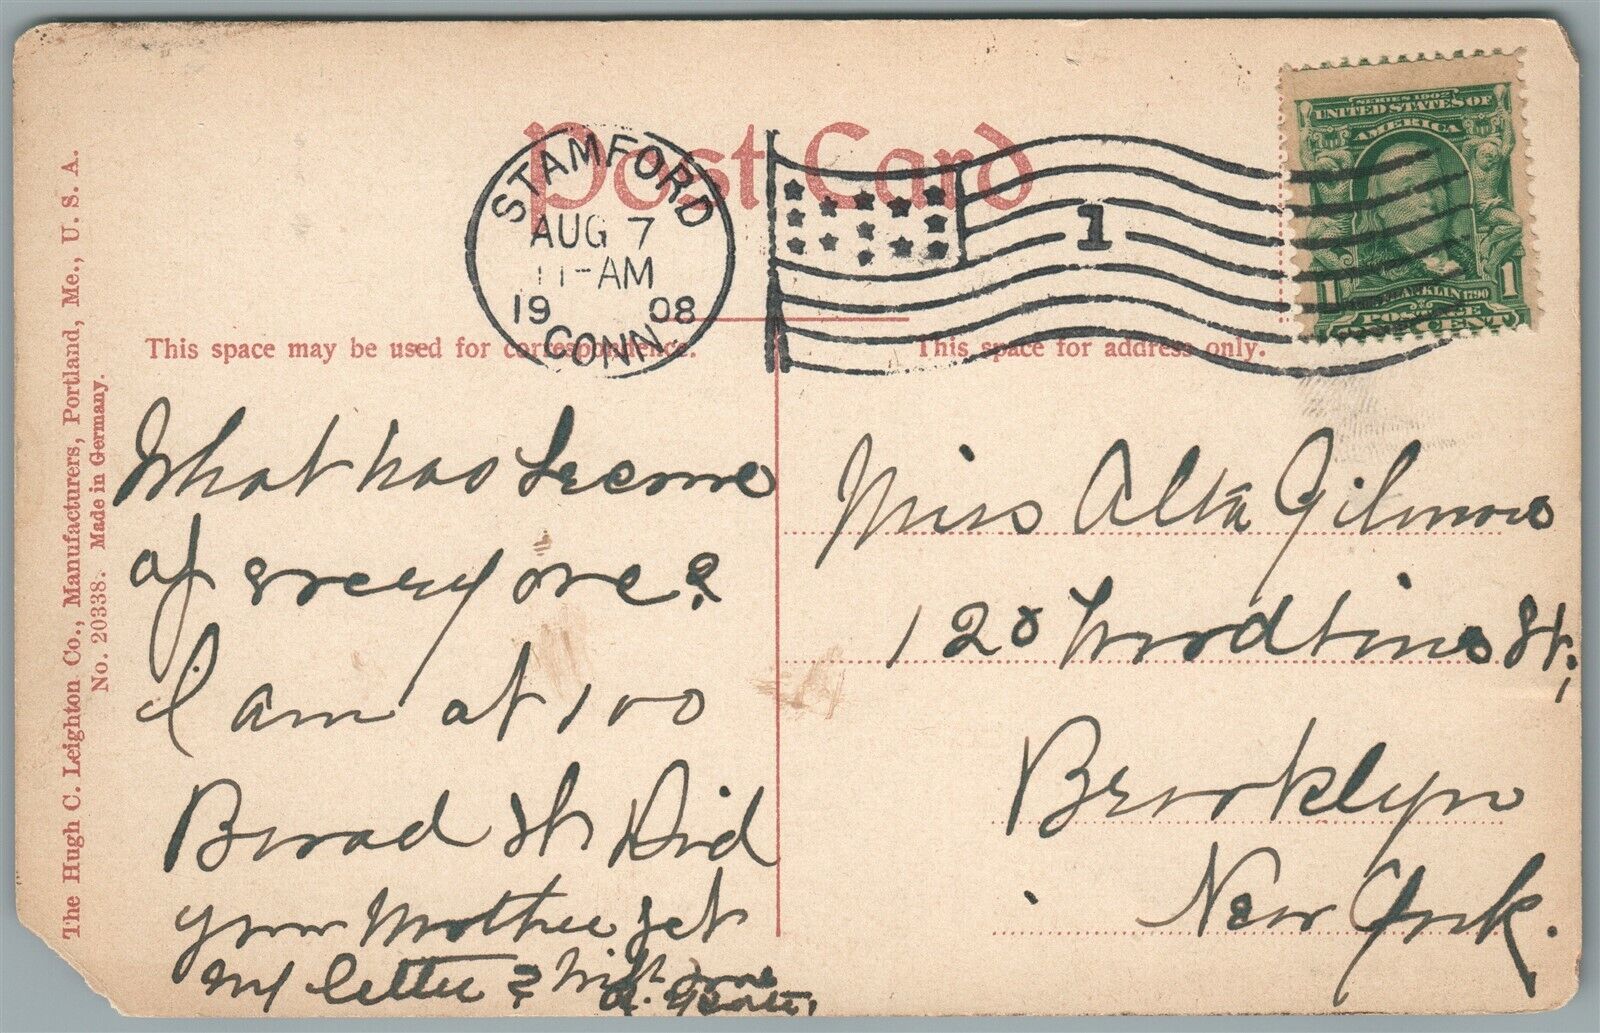 Post Card
STAMFORD
AUG 7
11-AM
19 08
CONN.
1
SERIES 1902
UNITED STATES OF
AMERICA
FRANKLIN 1790
1 1
POSTAGE
ONE CENT
This space may be used for correspondence.
This space for address only.
The Hugh C. Leighton Co., Manufacturers, Portland, Me., U. S. A.
No. 20338. Made in Germany.
What has become
of everyone?
I am at 100
Broad St Did
your Mother get
my letter?
Miss Alta Gilmore
128 Woodbine St.,
Brooklyn
New York.